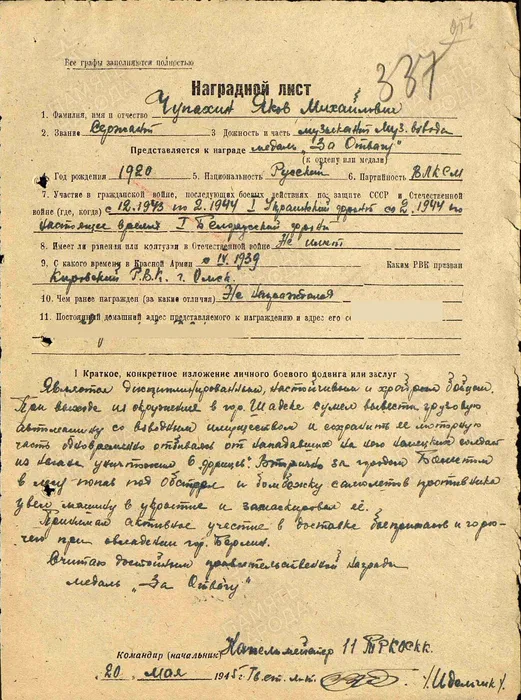 337
Все графы заполняются полностью
Наградной лист
1. Фамилия, имя и отчество Чупахин Яков Михайлович
2. Звание Сержант 3 Должность и часть музыкант муз. взвода
Представляется к награде медаль „За Отвагу"
(к ордену или медали)
4. Год рождения 1920 5. Национальность Русский 6. Партийность ВЛКСМ
7. Участие в гражданской войне, последующих боевых действиях по защите СССР и Отечественной
войне (где, когда) с 12.1943 по 2.1944 I Украинский фронт с 2.1944 по
настоящее время I Белорусский фронт
8. Имеет ли ранения или контузии в Отечественной войне Не имеет
9. С какого времени в Красной Армии с IV.1939 Каким РВК призван
Кировский Р.В.К. г. Омск.
10. Чем ранее награжден (за какие отличия) Не награждался
11. Постоянный домашний адрес представляемого к награждению и адрес его
I Краткое, конкретное изложение личного боевого подвига или заслуг
Является дисциплинированным, настойчивым и храбрым бойцом.
При выходе из окружения в гор. сумел вывести грузовую
автомашину со взводным имуществом и сохранить её моторную
часть обновременно отбиваясь от нападавших на него немецких солдат
из нагана уничтожил 6 фрицев. Вторично за городом
в лесу попав под обстрел и бомбежку самолетов противника
увел машину в укрытие и замаскировал её.
Принимал активное участие в доставке боеприпасов и горю-
чего при овладении гор. Берлин.
Считаю достойным правительственной награды
медаль „За Отвагу"
Командир (начальник) Капельмейстер 11 ТКОСКК.
20 мая 1945 г. Гв. ст. л-т.